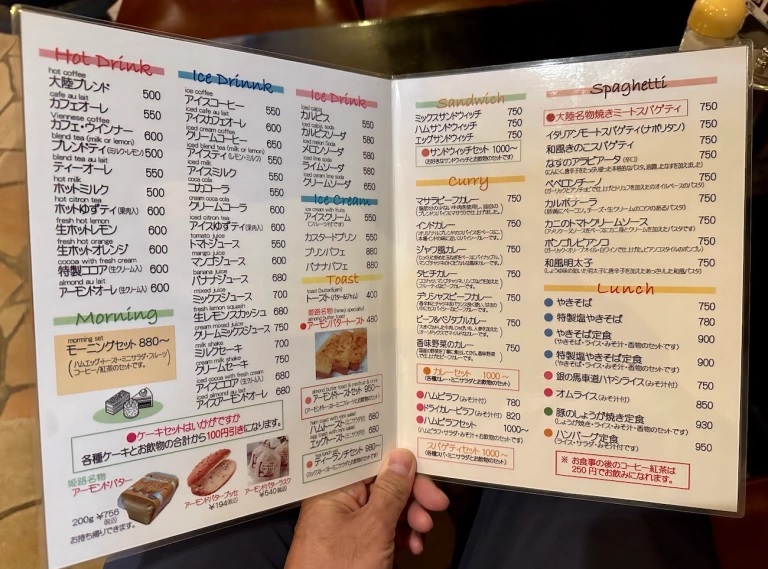 Hot Drink
hot coffee
大陸ブレンド 500
cafe au lait
カフェオーレ 550
Viennese coffee
カフェ・ウインナー 600
blend tea (milk or lemon)
ブレンドティ(ミルク・レモン) 500
blend tea au lait
ティーオーレ 550
hot milk
ホットミルク 500
hot citron tea
ホットゆずティ(果肉入) 600
fresh hot lemon
生ホットレモン 600
fresh hot orange
生ホットオレンジ 600
cocoa with fresh cream
特製ココア(生クリーム入) 600
almond au lait
アーモンドオーレ(生クリーム入) 600
Morning
morning set
モーニングセット 880～
(ハムエッグ・トース・ミニサラダ・フルーツ)
コーヒー/紅茶のセットです。
●ケーキセットはいかがですか
各種ケーキとお飲物の合計から100円引きになります。
姫路名物
アーモンドバター
200g ¥756
(税込)
お持ち帰りできます。
アーモンドバターブッセ
¥194(税込)
アーモンドバターラスク
¥640(税込)
Ice Drinnk
ice coffee
アイスコーヒー 550
iced cafe au lait
アイスカフェオーレ 600
iced cream coffee
クリームコーヒー 650
iced blend tea (milk or lemon)
アイスティ(レモン・ミルク) 550
iced milk
アイスミルク 550
coca cola
コカコーラ 550
cream coca cola
クリームコーラ 600
iced citron tea
アイスゆずティ(果肉入) 600
tomato juice
トマトジュース 550
mango juice
マンゴジュース 600
banana juice
バナナジュース 680
mixed juice
ミックスジュース 700
fresh lemon squash
生レモンスカッシュ 680
cream mixed juice
クリームミックスジュース 750
milk shake
ミルクセーキ 700
cream milk shake
クリームセーキ 750
iced cocoa with fresh cream
アイスココア(生クリーム入) 680
iced almond au lait
アイスアーモンドオーレ 680
Ice Drink
iced calpis
カルピス 550
iced calpis soda
カルピスソーダ 580
iced melon soda
メロンソーダ 580
iced lime soda
ライムソーダ 580
iced cream lime soda
クリームソーダ 680
Ice Cream
ice cream with fruits
アイスクリーム 550
(フルーツ付です)
カスタードプリン 550
プリンパフェ 880
バナナパフェ 880
Toast
toast (butter/jam)
トースト(バターorジャム) 400
姫路名物
almond butter toast
●アーモンドバタートースト 480
●アーモンドトーストセット 950～
ハムトースト(ミニサラダ付) 680
エッグトースト(ミニサラダ付) 680
●ティーランチセット 980～
Sandwich
ミックスサンドウィッチ 750
ハムサンドウィッチ 750
エッグサンドウィッチ 750
●サンドウィッチセット 1000～
(お好きなサンドウィッチとお飲物のセットです)
Curry
マサラビーフカレー 750
インドカレー 750
ジャワ風カレー 750
タヒチカレー 750
デリシャスビーフカレー 750
ビーフ&ベジタブルカレー 750
香味野菜のカレー 750
●カレーセット 1000～
(各種カレー・ミニサラダとお飲物のセットです)
●ハムピラフ(みそ汁付) 780
●ドライカレーピラフ(みそ汁付) 820
●ハムピラフセット 1000～
(ハムピラフ・サラダ・みそ汁+お飲物のセットです)
スパゲティセット 1000～
(各種スパ・ミニサラダとお飲物のセットです)
Spaghetti
●大陸名物焼きミートスパゲティ 750
イタリアンモートスパゲティ(ナポリタン) 750
和風きのこスパゲティ 750
なすのアラビアータ(辛口) 750
ペペロンチーノ 750
カルボナーラ 750
カニのトマトクリームソース 750
ボンゴレビアンコ 750
和風明太子 750
Lunch
●やきそば 750
●特製塩やきそば 780
●やきそば定食 900
(やきそば・ライス・みそ汁・香物のセットです)
●特製塩やきそば定食 900
(やきそば・ライス・みそ汁・香物のセットです)
●銀の馬車道ハヤシライス(みそ汁付) 750
●オムライス(みそ汁付) 850
●豚のしょうが焼き定食 930
(しょうが焼き・ライス・みそ汁・香物のセットです)
●ハンバーグ定食 950
(ライス・サラダ・みそ汁付です)
※ お食事の後のコーヒー紅茶は
250円でお飲みになれます。